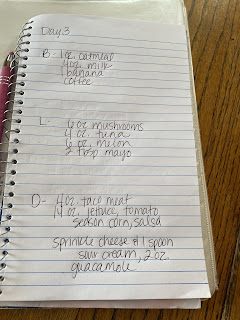 Day 3
B- 1 oz. oatmeal
4 oz. milk
1 banana
coffee
L- 6 oz mushrooms
4 oz. tuna
6 oz. melon
2 tbsp mayo
D- 4 oz. taco meat
14 oz. lettuce, tomato
season corn, salsa
sprinkle cheese & 1 spoon
sour cream, 2 oz.
guacamole